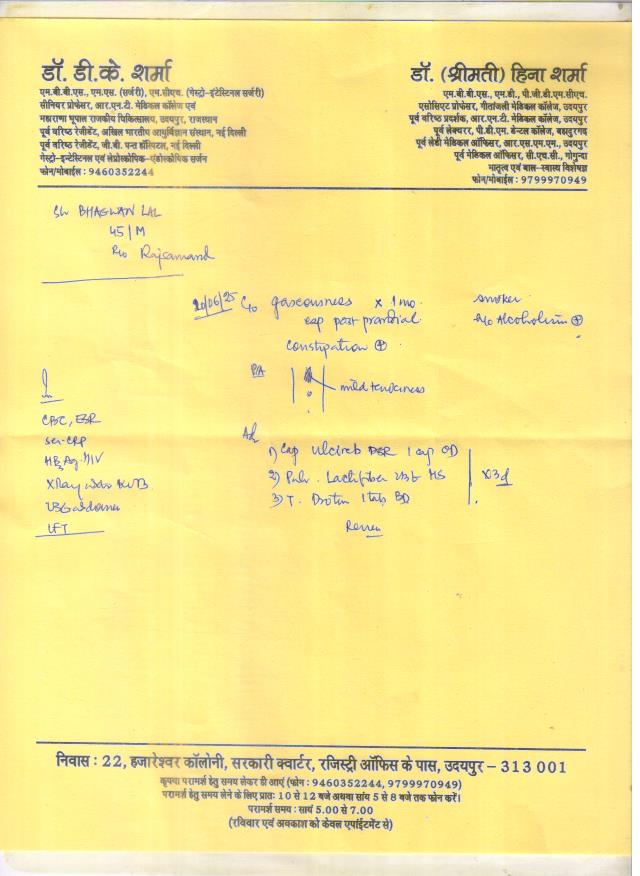 डॉ. डी.के. शर्मा
एम.बी.बी.एस., एम.एस. (सर्जरी), एम.सीएच. (गेस्ट्रो-इंटेस्टिनल सर्जरी)
सीनियर प्रोफेसर, आर.एन.टी. मेडिकल कॉलेज एवं
महाराणा भूपाल राजकीय चिकित्सालय, उदयपुर, राजस्थान
पूर्व वरिष्ठ रेजीडेंट, अखिल भारतीय आयुर्विज्ञान संस्थान, नई दिल्ली
पूर्व वरिष्ठ रेजीडेंट, जी.बी. पन्त हॉस्पिटल, नई दिल्ली
गेस्ट्रो-इन्टेस्टिनल एवं लेप्रोस्कोपिक-एंडोस्कोपिक सर्जन
फोन/मोबाईल : 9460352244
डॉ. (श्रीमती) हिना शर्मा
एम.बी.बी.एस., एम.डी., पी.जी.डी.एम.सीएच.
एसोसिएट प्रोफेसर, गीतांजली मेडिकल कॉलेज, उदयपुर
पूर्व वरिष्ठ प्रदर्शक, आर.एन.टी. मेडिकल कॉलेज, उदयपुर
पूर्व लेक्चरर, पी.डी.एम. डेन्टल कॉलेज, बहादुरगढ़
पूर्व लेडी मेडिकल ऑफिसर, आर.एस.एम.एम., उदयपुर
पूर्व मेडिकल ऑफिसर, सी.एच.सी., गोगुन्दा
मातृत्व एवं बाल-स्वास्थ्य विशेषज्ञ
फोन/मोबाईल : 9799970949
Sh BHAGWAN LAL
45/M
R/o Rajsamand
20/06/25 C/o gaseousness x 1 mo.
esp post prandial
Constipation ⊕
smoker
H/o Alcoholism ⊕
P/A
mild tenderness
CBC, ESR
Ser-CRP
HBsAg. HIV
X Ray KUB
USG abdomen
LFT
Adv
1) Cap Ulcireb DSR 1 cap OD
2) Pulv. Lactifiber HS
3) T. Drotin 1 tab BD
x 3 d
Review
निवास : 22, हजारेश्वर कॉलोनी, सरकारी क्वार्टर, रजिस्ट्री ऑफिस के पास, उदयपुर – 313 001
कृपया परामर्श हेतु समय लेकर ही आएं (फोन : 9460352244, 9799970949)
परामर्श हेतु समय लेने के लिए प्रातः 10 से 12 बजे अथवा सांय 5 से 8 बजे तक फोन करें।
परामर्श समय : सायं 5.00 से 7.00
(रविवार एवं अवकाश को केवल एपॉईंटमेंट से)